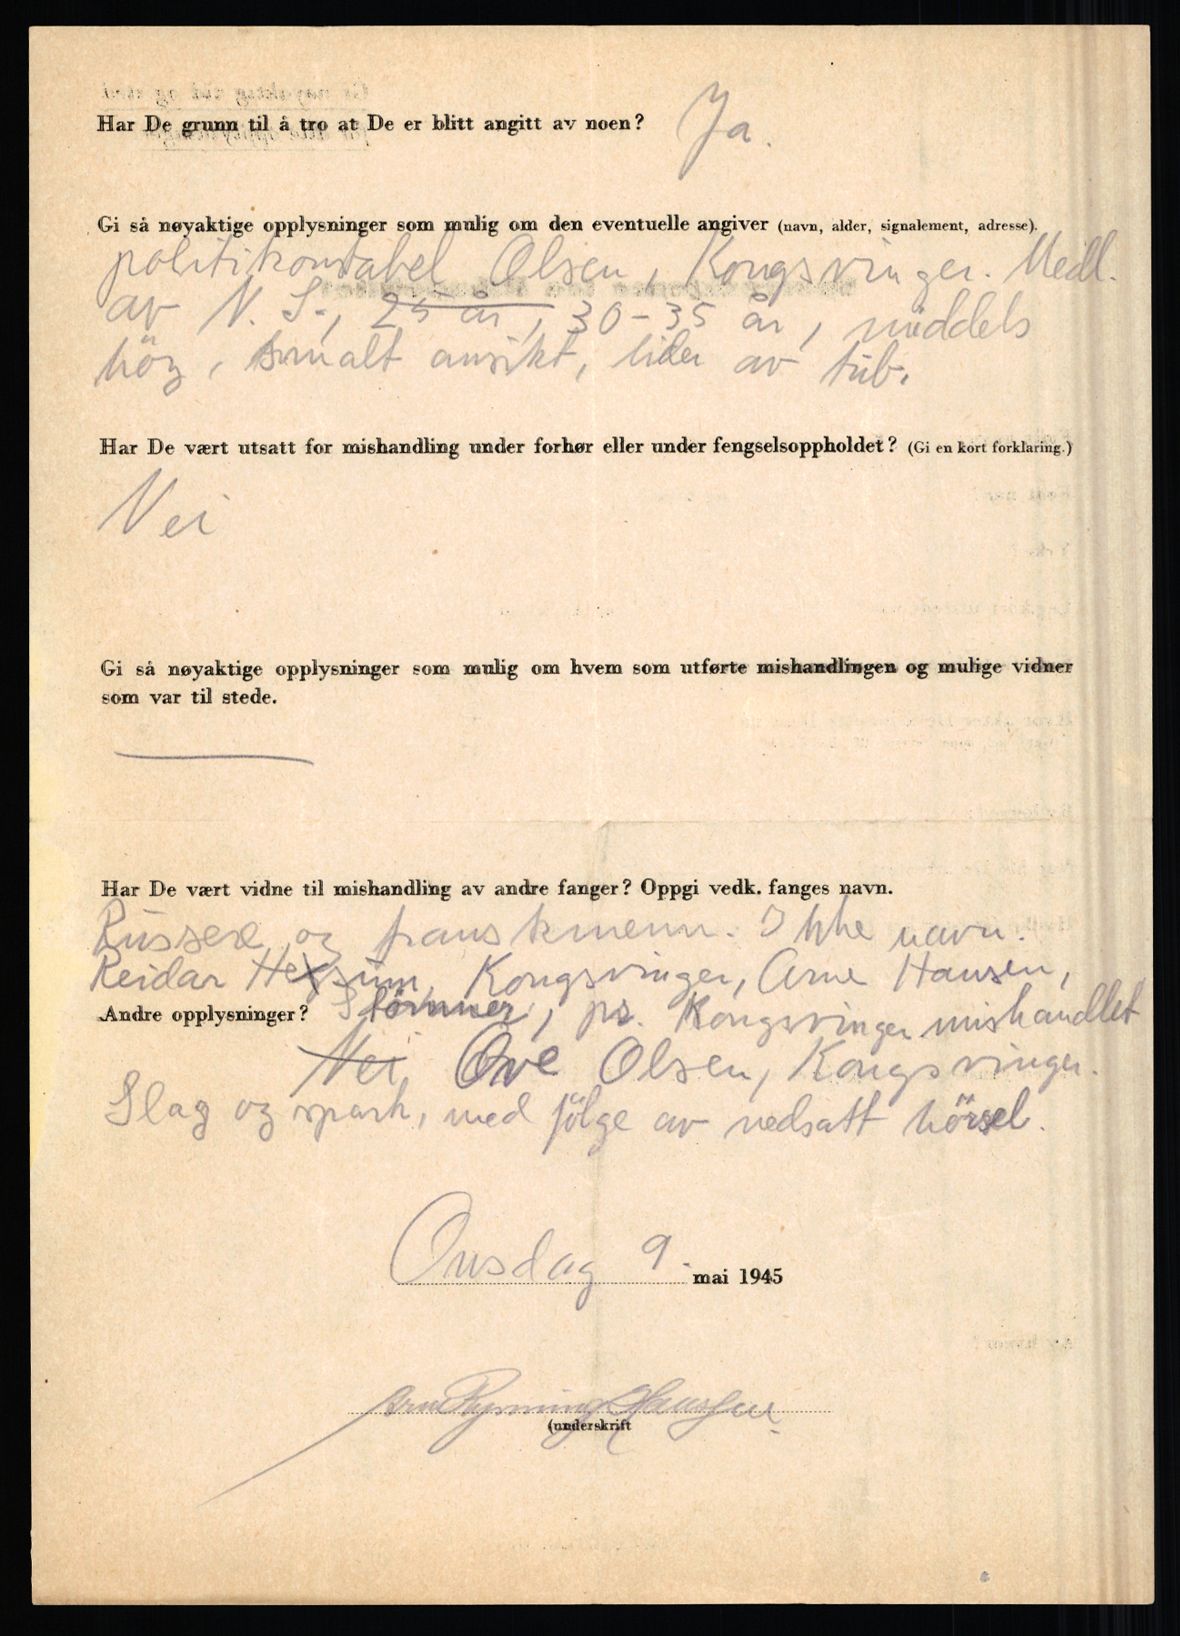 Har De grunn til å tro at De er blitt angitt av noen? Ja.
Gi så nøyaktige opplysninger som mulig om den eventuelle angiver (navn, alder, signalement, adresse).
politikonstabel Olsen, Kongsvinger. Medl.
av N. S., 25 år, 30-35 år, middels
höy, smalt ansikt, lider av tub.
Har De vært utsatt for mishandling under forhør eller under fengselsoppholdet? (Gi en kort forklaring.)
Nei
Gi så nøyaktige opplysninger som mulig om hvem som utførte mishandlingen og mulige vidner
som var til stede.
Har De vært vidne til mishandling av andre fanger? Oppgi vedk. fanges navn.
Russere og franskmenn. Ikke navn.
Reidar Kongsvinger, Arne Hansen,
Andre opplysninger? Störmner, pr. Kongsvinger mishandlet
Nei Ove Olsen, Kongsvinger.
Slag og spark, med fölge av nedsatt hörsel.
Onsdag 9. mai 1945
Arne Rynning Hanssen
(underskrift